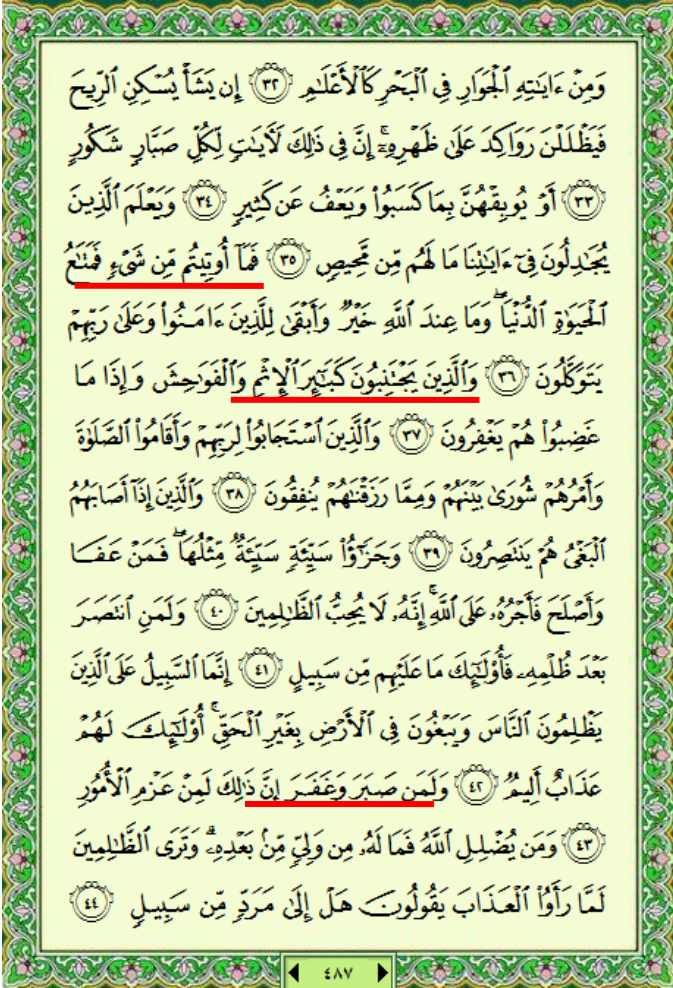 وَمِنْ ءَايَٰتِهِ ٱلْجَوَارِ فِي ٱلْبَحْرِ كَٱلْأَعْلَٰمِ ٣٢ إِن يَشَأْ يُسْكِنِ ٱلرِّيحَ
فَيَظْلَلْنَ رَوَاكِدَ عَلَىٰ ظَهْرِهِۦٓ ۚ إِنَّ فِي ذَٰلِكَ لَأٓيَٰتٍ لِّكُلِّ صَبَّارٍ شَكُورٍ
٣٣ أَوْ يُوبِقْهُنَّ بِمَا كَسَبُواْ وَيَعْفُ عَن كَثِيرٍ ٣٤ وَيَعْلَمَ ٱلَّذِينَ
يُجَٰدِلُونَ فِيٓ ءَايَٰتِنَا مَا لَهُم مِّن مَّحِيصٍ ٣٥ فَمَآ أُوتِيتُم مِّن شَيْءٍ فَمَتَٰعُ
ٱلْحَيَوٰةِ ٱلدُّنْيَا ۖ وَمَا عِندَ ٱللَّهِ خَيْرٌ وَأَبْقَىٰ لِلَّذِينَ ءَامَنُواْ وَعَلَىٰ رَبِّهِمْ
يَتَوَكَّلُونَ ٣٦ وَٱلَّذِينَ يَجْتَنِبُونَ كَبَٰٓئِرَ ٱلْإِثْمِ وَٱلْفَوَٰحِشَ وَإِذَا مَا
غَضِبُواْ هُمْ يَغْفِرُونَ ٣٧ وَٱلَّذِينَ ٱسْتَجَابُواْ لِرَبِّهِمْ وَأَقَامُواْ ٱلصَّلَوٰةَ
وَأَمْرُهُمْ شُورَىٰ بَيْنَهُمْ وَمِمَّا رَزَقْنَٰهُمْ يُنفِقُونَ ٣٨ وَٱلَّذِينَ إِذَآ أَصَابَهُمُ
ٱلْبَغْيُ هُمْ يَنتَصِرُونَ ٣٩ وَجَزَٰٓؤُاْ سَيِّئَةٍ سَيِّئَةٌ مِّثْلُهَا ۖ فَمَنْ عَفَا
وَأَصْلَحَ فَأَجْرُهُۥ عَلَى ٱللَّهِ ۚ إِنَّهُۥ لَا يُحِبُّ ٱلظَّٰلِمِينَ ٤٠ وَلَمَنِ ٱنتَصَرَ
بَعْدَ ظُلْمِهِۦ فَأُوْلَٰٓئِكَ مَا عَلَيْهِم مِّن سَبِيلٍ ٤١ إِنَّمَا ٱلسَّبِيلُ عَلَى ٱلَّذِينَ
يَظْلِمُونَ ٱلنَّاسَ وَيَبْغُونَ فِي ٱلْأَرْضِ بِغَيْرِ ٱلْحَقِّ ۚ أُوْلَٰٓئِكَ لَهُمْ
عَذَابٌ أَلِيمٌ ٤٢ وَلَمَن صَبَرَ وَغَفَرَ إِنَّ ذَٰلِكَ لَمِنْ عَزْمِ ٱلْأُمُورِ
٤٣ وَمَن يُضْلِلِ ٱللَّهُ فَمَا لَهُۥ مِن وَلِيٍّ مِّنۢ بَعْدِهِۦ ۗ وَتَرَى ٱلظَّٰلِمِينَ
لَمَّا رَأَوُاْ ٱلْعَذَابَ يَقُولُونَ هَلْ إِلَىٰ مَرَدٍّ مِّن سَبِيلٍ ٤٤
٤٨٧